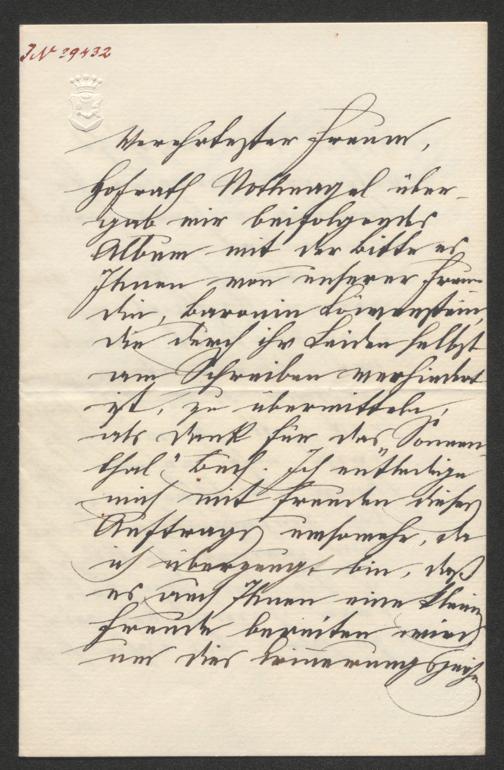 JN 29432
Verehrtester Freund,
Hofrath Nothnagel über-
gab mir beifolgendes
Album mit der Bitte es
Ihnen von unserer Freun-
din, Baronin Löwenstein,
die durch ihr Leiden selbst
am Schreiben verhindert
ist, zu übermitteln,
als Dank für das "Sonnen-
thal" Buch. Ich entledige
mich mit Freuden dieses
Auftrags umsomehr, da
ich überzeugt bin, daß
es auch Ihnen eine kleine
Freude bereiten wird
um dies